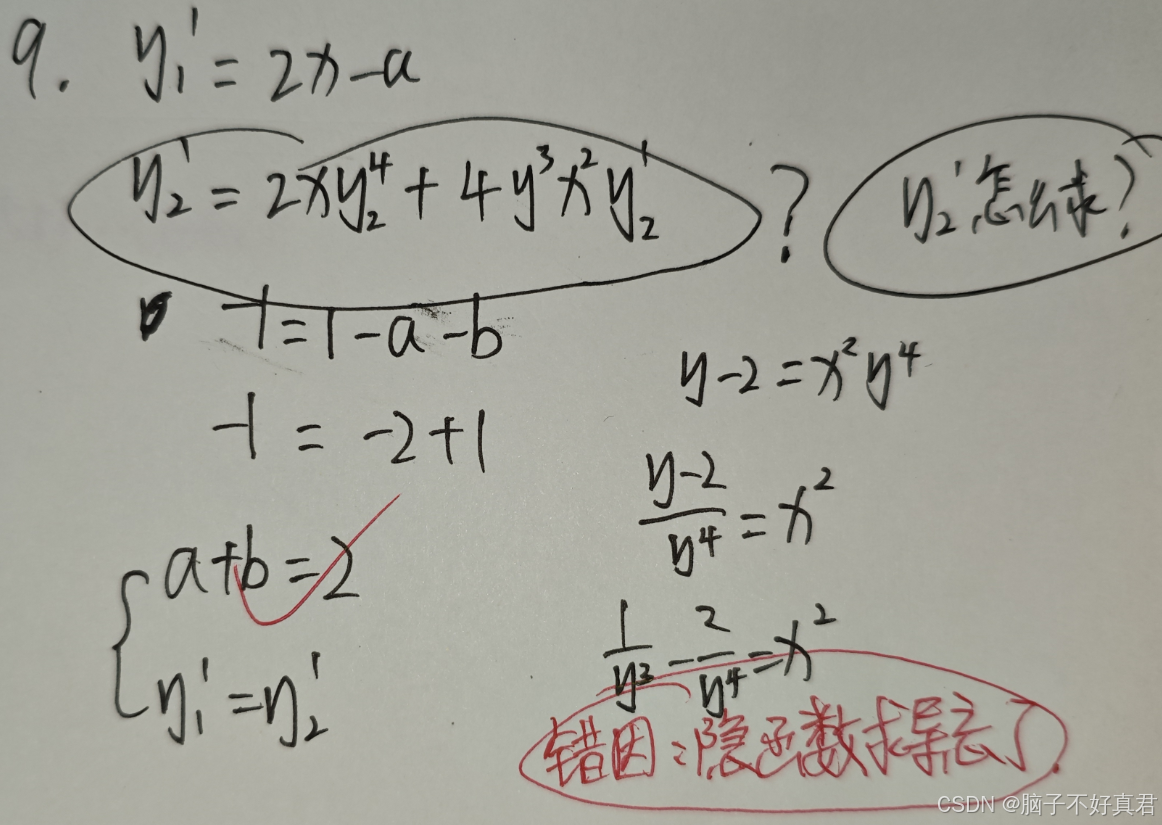 9. y₁' = 2x-a
y₂' = 2xy₂⁴ + 4y³x²y₂' ? y₂'怎么求?
-1 = 1-a-b
-1 = -2+1
a+b=2
y₁' = y₂'
y-2 = x²y⁴
(y-2)/y⁴ = x²
1/y³ - 2/y⁴ = x²
错因:隐函数求导忘了.
CSDN @脑子不好真君